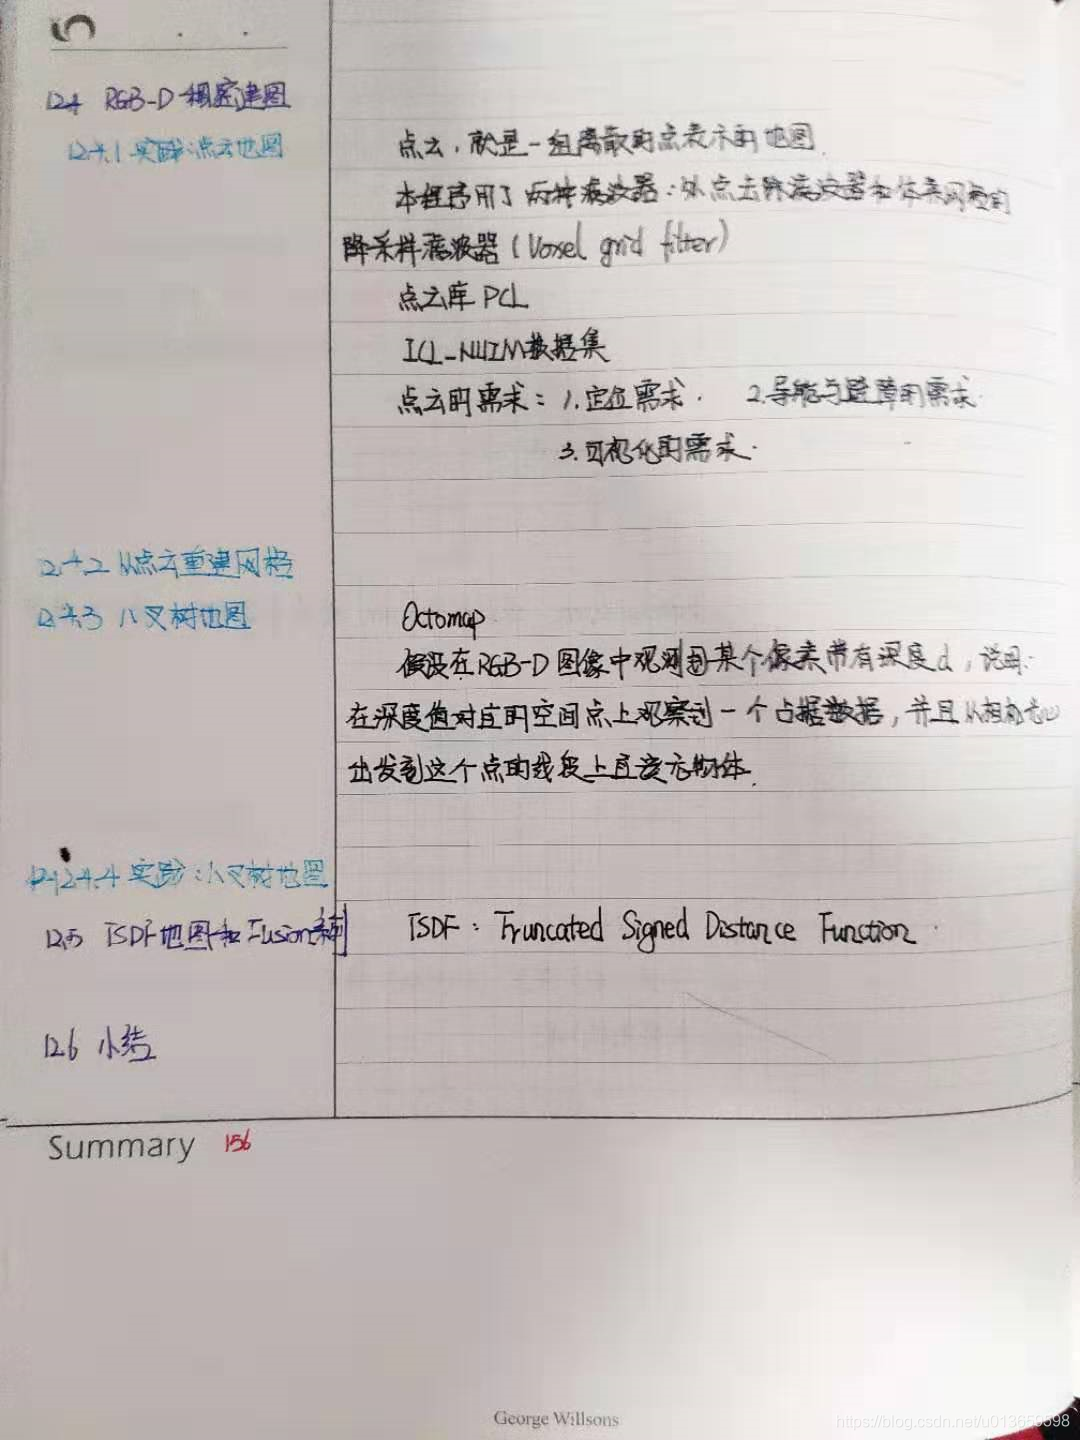 5
12.4 RGB-D 稠密建图
12.4.1 实践:点云地图
点云,就是一组离散的点表示的地图.
本程序用了两种滤波器:外点去除滤波器和体素网格的
降采样滤波器(Voxel grid filter)
点云库 PCL
ICL-NUIM数据集
点云的需求: 1.定位需求. 2.导航与避障的需求.
3.可视化的需求.
12.4.2 从点云重建网格
12.4.3 八叉树地图
Octomap
假设在RGB-D图像中观测到某个像素带有深度d,说明:
在深度值对应的空间点上观察到一个占据数据,并且从相机光心
出发到这个点的线段上应该无物体.
12.4.4 实践:八叉树地图
12.5 TSDF地图和Fusion系列
TSDF: Truncated Signed Distance Function
12.6 小结
Summary 156
George Willsons
https://blog.csdn.net/u013659898